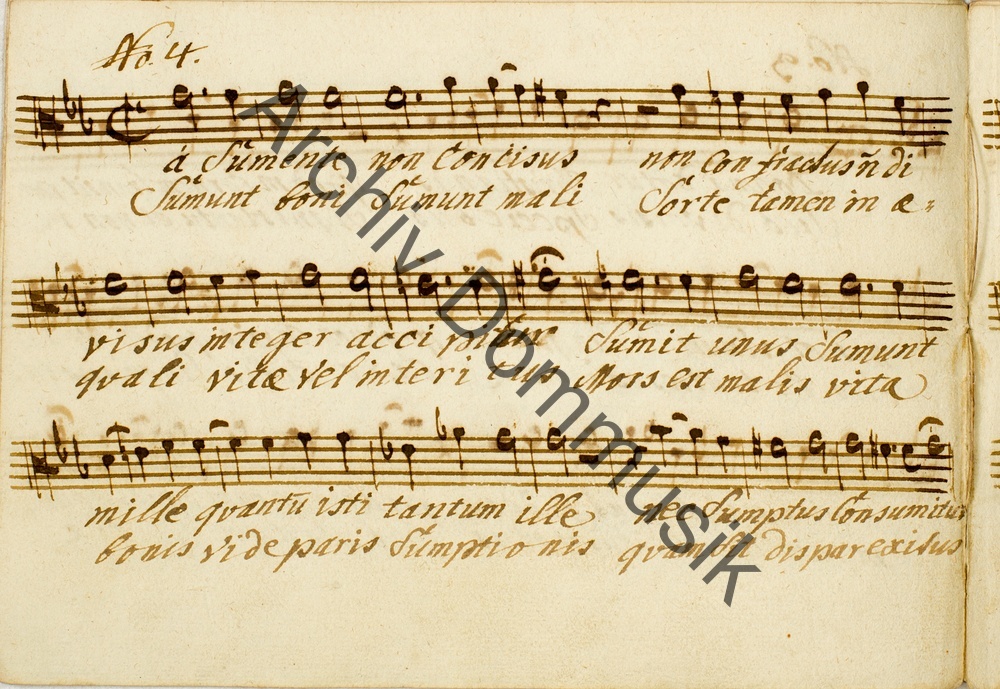 No. 4.
á Sumente non Concisus non confractus ñ di
Sumunt boni Sumunt mali Sorte tamen in æ=
visus integer acci pitur Sumit unus Sumunt
quali vitæ vel interi tus Mors est malis vita
mille quantū isti tantum ille nec Sumptus Consumitur
bonis vide paris Sumptionis quam sit dispar exitus
Archiv Dommusik